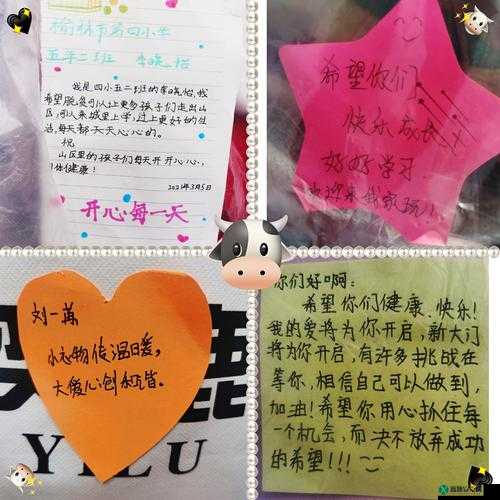 榆林市第四小学
五年二班 李晚怡
我是四小五二班的李晚怡,我
希望脱贫可以让更多孩子们走出山
区,可以来城里上学,过上更好的生
活,每天都天天心心的。
祝
山区里的孩子们每天开开心心,
身体健康!
2021年3月5日
开心每一天
希望你们
快乐成长
好好学习
欢迎来我家玩!!
刘一苒
小志物传温暖,
大爱心创和皆。
YULU
你们好啊:
希望你们健康、快乐!
我的爱将为你开启,新大门
将为你开启,有许多挑战在
等你,相信自己可以做到,
加油!希望你用心抓住每
一个机会,而决不放弃成功
的希望!!!